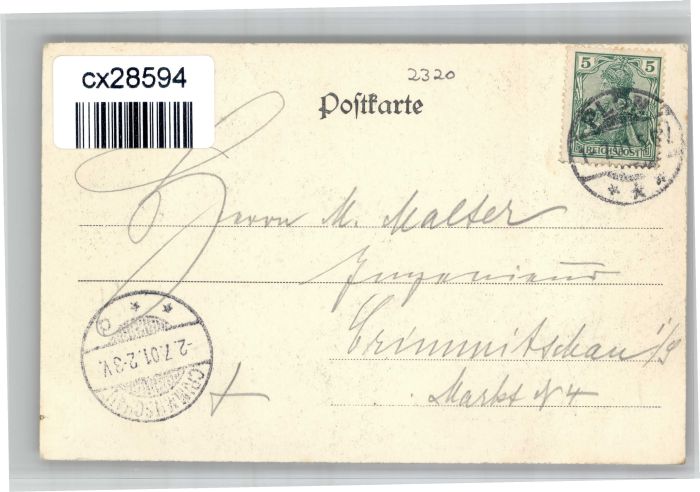 cx28594
2320
Postkarte
5 5
REICHSPOST
PLÖN
Herrn M. Malter
Ingenieur
Crimmitschau i/S
Markt N 4
-2.7.01.2-3V.
CRIMMITSCHAU